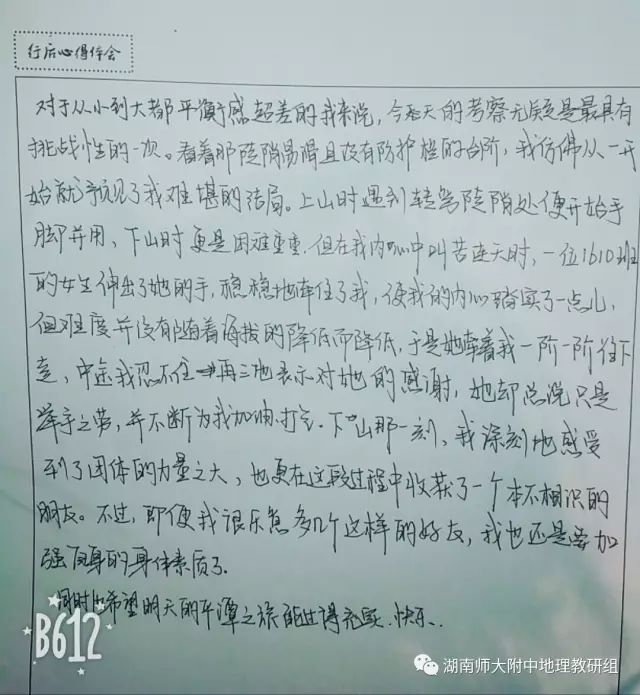 行后心得体会
对于从小到大都平衡感超差的我来说，今天的考察无疑是最具有
挑战性的一次。看着那陡峭易滑且没有防护栏的台阶，我仿佛从一开
始就预见了我难堪的结局。上山时遇到转弯陡峭处便开始手
脚并用、下山时更是困难重重.但在我内心中叫苦连天时，一位1610班
的女生伸出了她的手，稳稳地牵住了我，使我的内心踏实了一点儿，
但难度并没有随着海拔的降低而降低，于是她牵着我一阶一阶往下
走，中途我忍不住再三地表示对她的感谢，她却总说只是
举手之劳，并不断为我加油打气.下山那一刻、我深刻地感受
到了团体的力量之大，也更在这段过程中收获了一个本不相识的
朋友。不过，即便我很乐意多几个这样的好友，我也还是要加
强自身的身体素质了.
同时也希望明天的平潭之旅能过得充实、快乐.
B612
湖南师大附中地理教研组